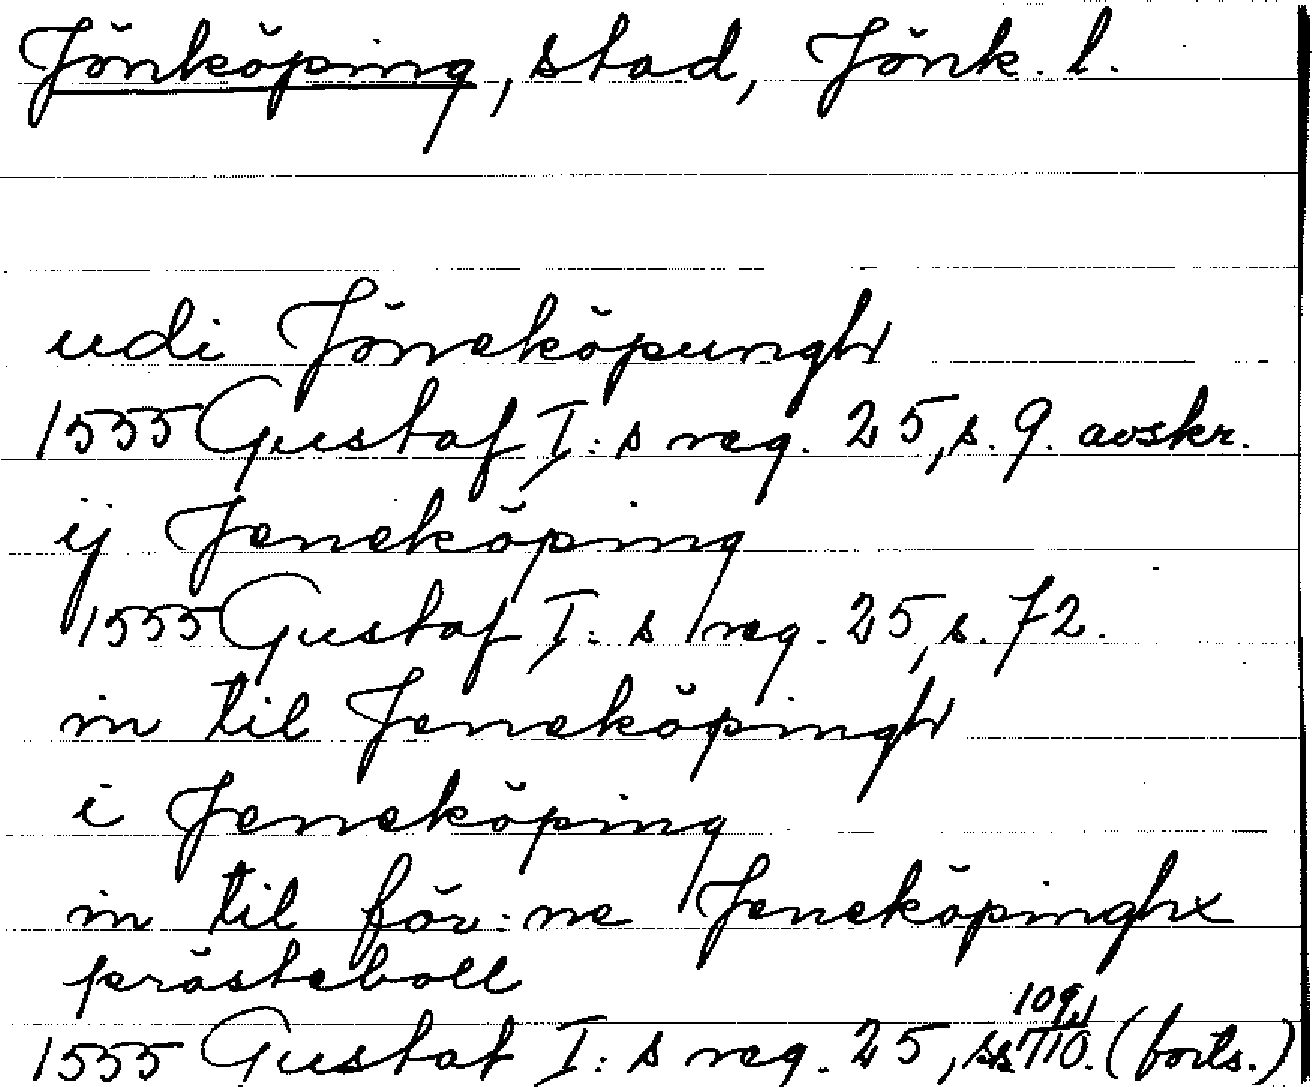 Jönköping, stad, Jönk. l.
udi Jöneköpungh
1555 Gustaf I:s reg. 25, s. 9. avskr.
ij Jeneköping
1555 Gustaf I:s reg. 25, s. 72.
in til Jeneköpingh
i Jeneköping
in til för:ne Jeneköpinghx
prästeboll
1555 Gustaf I:s reg. 25, ss. 109, 110. (forts.)